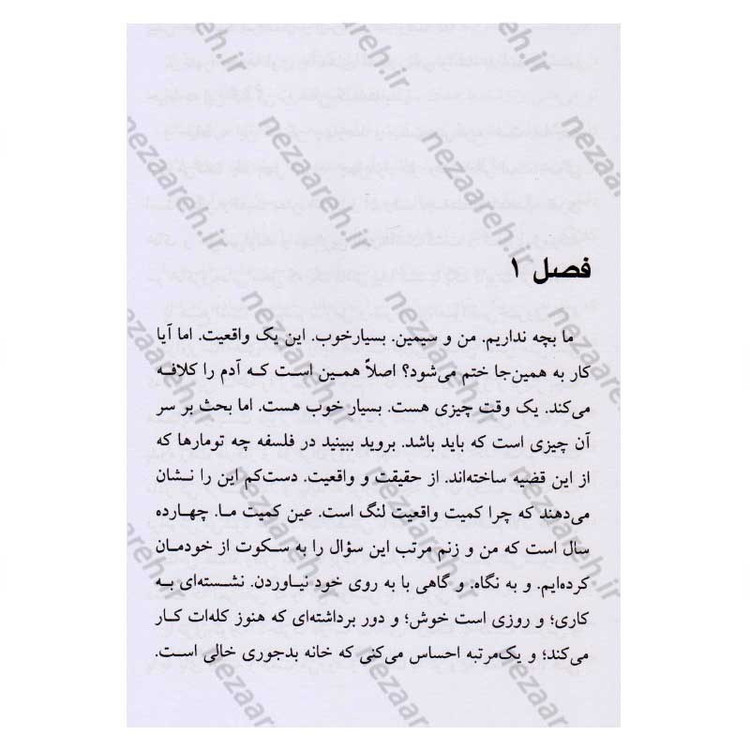 فصل ۱
ما بچه نداریم. من و سیمین. بسیارخوب. این یک واقعیت. اما آیا
کار به همین‌جا ختم می‌شود؟ اصلاً همین است که آدم را کلافه
می‌کند. یک وقت چیزی هست. بسیار خوب هست. اما بحث بر سر
آن چیزی است که باید باشد. بروید ببینید در فلسفه چه تومارها که
از این قضیه ساخته‌اند. از حقیقت و واقعیت. دست‌کم این را نشان
می‌دهند که چرا کمیت واقعیت لنگ است. عین کمیت ما. چهارده
سال است که من و زنم مرتب این سؤال را به سکوت از خودمان
کرده‌ایم. و به نگاه. و گاهی با به روی خود نیاوردن. نشسته‌ای به
کاری؛ و روزی است خوش؛ و دور برداشته‌ای که هنوز کله‌ات کار
می‌کند؛ و یک‌مرتبه احساس می‌کنی که خانه بدجوری خالی است.
nezaareh.ir